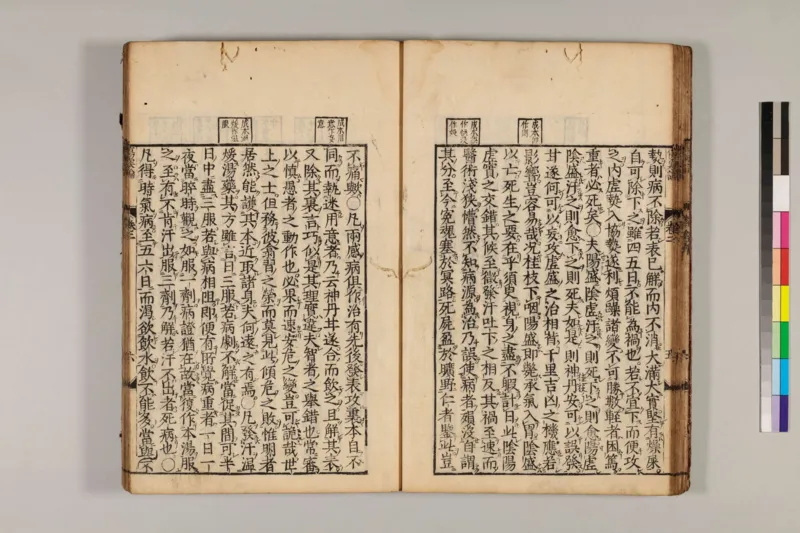 熱則病不除若表已解而内不消大滿大實堅有燥屎
自可除下之雖四五日不能為禍也若不宜下而便攻
之内虛熱入恊熱遂利煩躁諸變不可勝數輕者困篤
重者必死矣〇夫陽盛陰虛汗之則死下之則愈陽虛
陰盛汗之則愈下之則死夫如是則神丹安可以誤發
甘遂何可以妄攻虛盛之治相背千里吉凶之機應若
影響豈容易哉况桂枝下咽陽盛即斃承氣入胃陰盛
以亡死生之要在乎須臾視身之盡不暇計日此陰陽
虛實之交錯其候至微發汗吐下之相反其禍至速而
醫術淺狹懵然不知病源為治乃誤使病者殞沒自謂
其分至令冤魂塞於冥路死屍盈於曠野仁者鑒此豈
不痛歟〇凡兩感病俱作治有先後發表攻裏本自不
同而執迷用意者乃云神丹甘遂合而飲之且解其表
又除其裏言巧似是其理實違夫智者之舉錯也常審
以慎愚者之動作也必果而速安危之變豈可詭哉世
上之士但務彼翕習之榮而莫見此傾危之敗惟明者
居然能護其本近取諸身夫何遠之有焉〇凡發汗溫
煖湯藥其方雖言日三服若病劇不解當促其間可半
日中盡三服若與病相阻即便有所覺病重者一日一
夜當晬時觀之如服一劑病證猶在故當復作本湯服
之至有不肯汗出服三劑乃解若汗不出者死病也〇
凡得時氣病至五六日而渴欲飲水飲不能多當與不